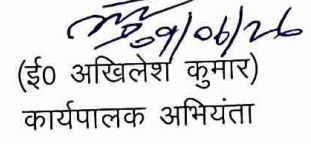 09/06/26
(ई0 अखिलेश कुमार)
कार्यपालक अभियंता